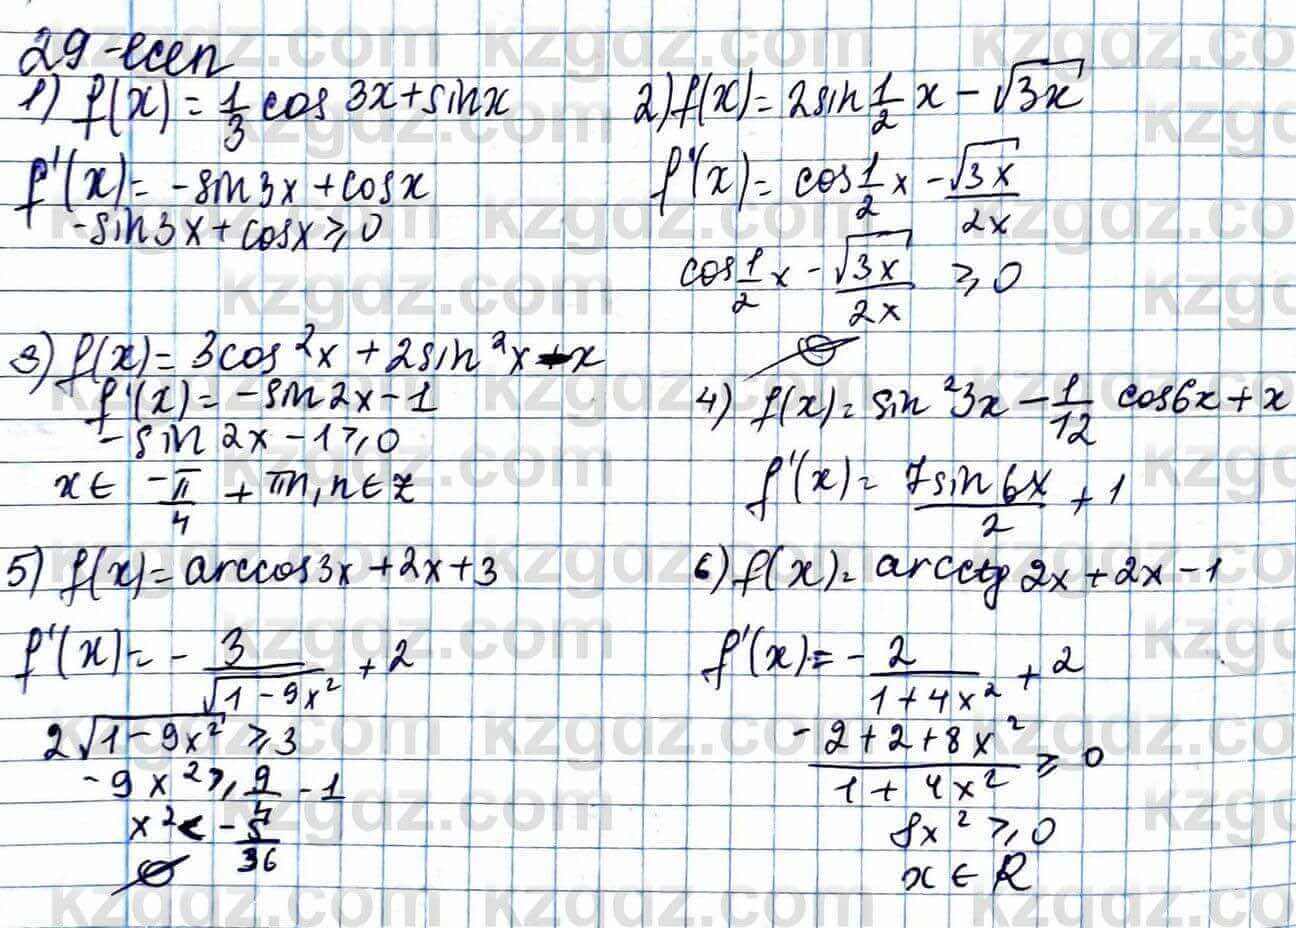 29-есеп
1) f(x) = 1/3 cos 3x + sin x
f'(x) = -sin 3x + cos x
-sin 3x + cos x ⩾ 0
2) f(x) = 2sin 1/2 x - √3x
f'(x) = cos 1/2 x - √3x/2x
cos 1/2 x - √3x/2x ⩾ 0
∅
3) f(x) = 3cos²x + 2sin²x - x
f'(x) = -sin 2x - 1
-sin 2x - 1 ⩾ 0
x ∈ -π/4 + πn, n ∈ z
4) f(x) = sin²3x - 1/12 cos6x + x
f'(x) = 7sin 6x/2 + 1
5) f(x) = arccos3x + 2x + 3
f'(x) = - 3/√1-9x² + 2
2√1-9x² ⩾ 3
-9x² ⩾ 9/4 - 1
x² < - 5/36
∅
6) f(x) = arcctg 2x + 2x - 1
f'(x) = - 2/1+4x² + 2
-2+2+8x²/1+4x² ⩾ 0
8x² ⩾ 0
x ∈ R
kzgdz.com